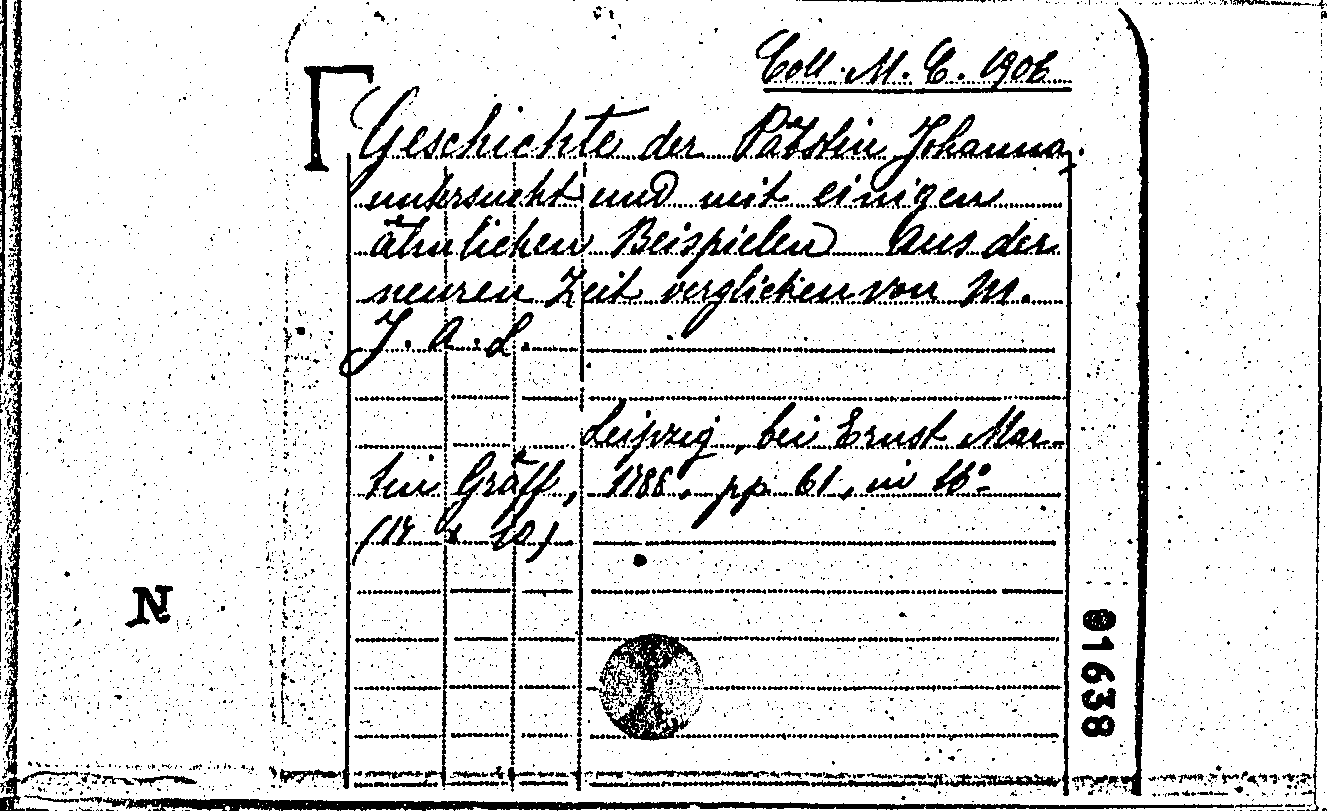 Coll. M. C. 1906
Geschichte der Päbstin Johanna,
untersucht und mit einigen
ähnlichen Beispielen aus der
neuren Zeit verglichen von M.
J. A. L.
Leipzig, bei Ernst Mar-
tin Gräff, 1788, pp. 61, in
N
01638